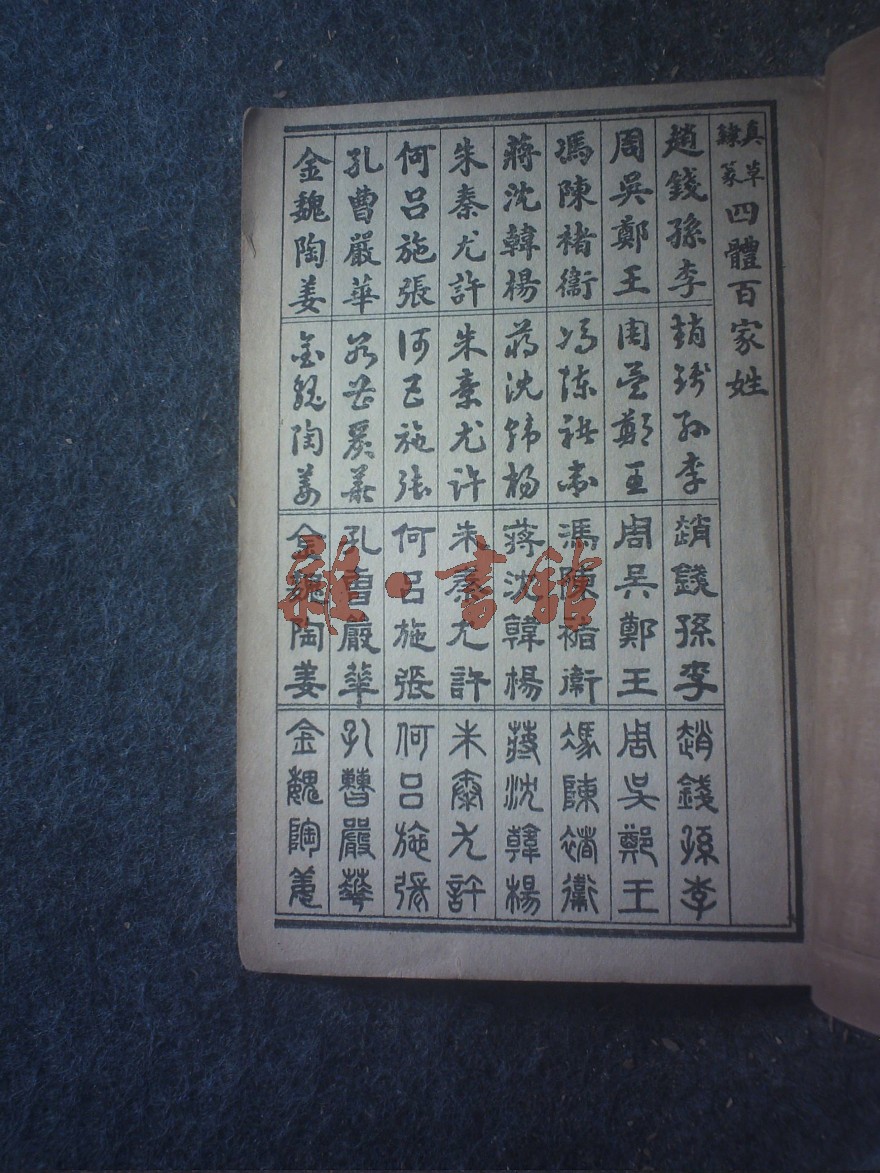 真草隷篆四體百家姓
趙錢孫李
趙錢孫李
趙錢孫李
趙錢孫李
周吳鄭王
周吳鄭王
周吳鄭王
周吳鄭王
馮陳褚衞
馮陳褚衞
馮陳褚衞
馮陳褚衞
蔣沈韓楊
蔣沈韓楊
蔣沈韓楊
蔣沈韓楊
朱秦尤許
朱秦尤許
朱秦尤許
朱秦尤許
何吕施張
何吕施張
何吕施張
何吕施張
孔曹嚴華
孔曹嚴華
孔曹嚴華
孔曹嚴華
金魏陶姜
金魏陶姜
金魏陶姜
金魏陶姜
雜·書館